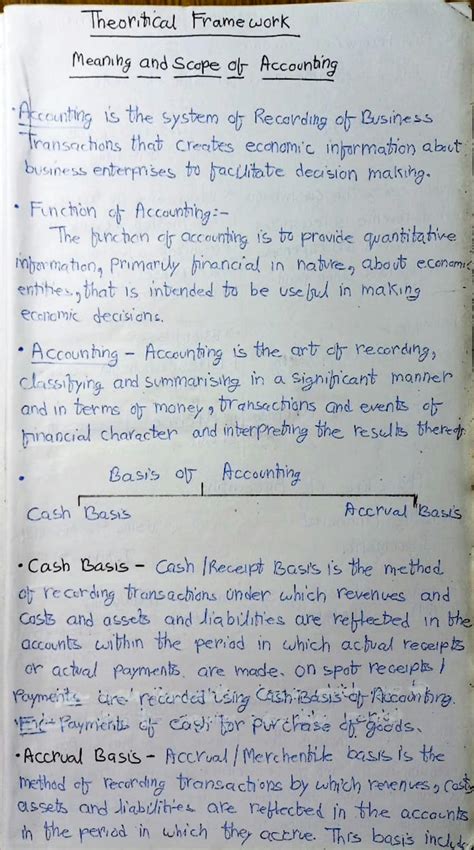 Theoritical Framework
Meaning and Scope of Accounting
• Accounting is the system of Recording of Business
Transactions that creates economic information about
business enterprises to facilitate decision making.
• Function of Accounting:-
The function of accounting is to provide quantitative
information, primarily financial in nature, about economic
entities, that is intended to be useful in making
economic decisions.
• Accounting - Accounting is the art of recording,
classifying and summarising in a significant manner
and in terms of money, transactions and events of
financial character and interpreting the results thereof.
• Basis of Accounting
Cash Basis Accrual Basis
• Cash Basis - Cash/Receipt Basis is the method
of recording transactions under which revenues and
costs and assets and liabilities are reflected in the
accounts within the period in which actual receipts
or actual payments are made. on spot receipts/
Payments are recorded using Cash Basis of Accounting.
Ex:- Payments of cash for purchase of goods.
• Accrual Basis - Accrual/Merchentile basis is the
method of recording transactions by which revenues, costs,
assets and liabilities are reflected in the accounts
in the period in which they accrue. This basis include